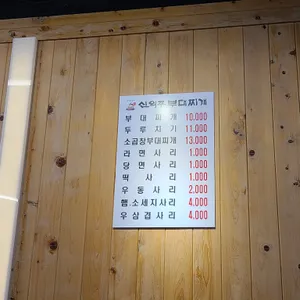 부대찌개
부대찌개 10.000
두루치기 11.000
소곱창부대찌개 13.000
라면사리 1.000
당면사리 1.000
떡사리 1.000
우동사리 2.000
햄.소세지사리 4.000
우삼겹사리 4.000